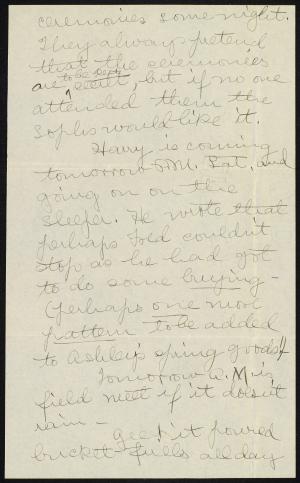 ceremonies some night.
They always pretend
that the ceremonies
are to be secret, but if no one
attended them the
Sophs would like it.
Harry is coming
tomorrow P.M. Sat. and
going on on the
sleeper. He wrote that
perhaps Fred couldn't
stop as he had got
to do some buying -
(perhaps one more
pattern to be added
to Ashley's spring goods!)
Tomorrow A.M. is
field meet if it doesn't
rain -
Gee! it poured
bucket-fulls all day